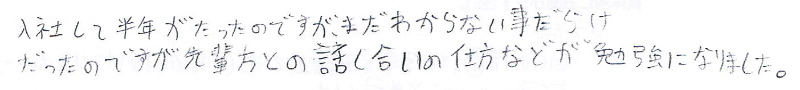 入社して半年がたったのですが、まだわからない事だらけ
だったのですが先輩方との話し合いの仕方などが勉強になりました。